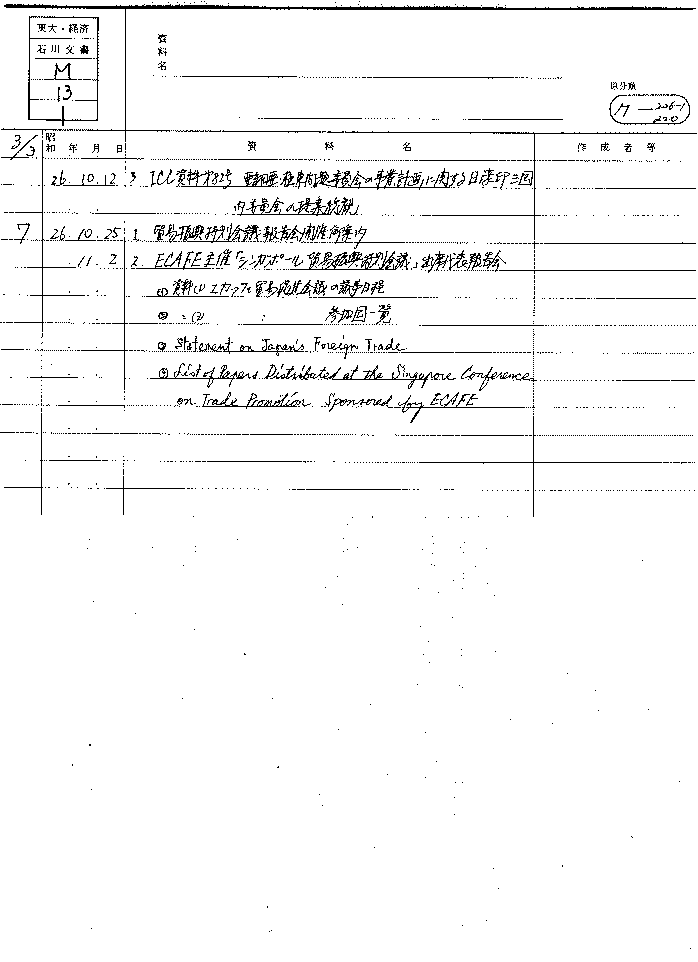 東大・経済
石川文書
M
13
1
資料名
原分類
M—226-1
220
3/3
昭和 年 月 日 資料名 作成者等
26. 10. 12 3 ICC資料第82号 亜細亜極東問題委員会の事業計画に関する日濠印三国
内委員会の提案状況」
7 26. 10. 25 1. 貿易振興特別会議報告会開催御案内
11. 2 2. ECAFE主催「シンガポール貿易振興特別会議」出席代表報告会
① 資料(1) エカッフェ貿易促進会議の議事日程
② 〃 (2) 〃 参加国一覧
③ Statement on Japan's Foreign Trade
④ List of Papers Distributed at the Singapore Conference
on Trade Promotion Sponsored by ECAFE